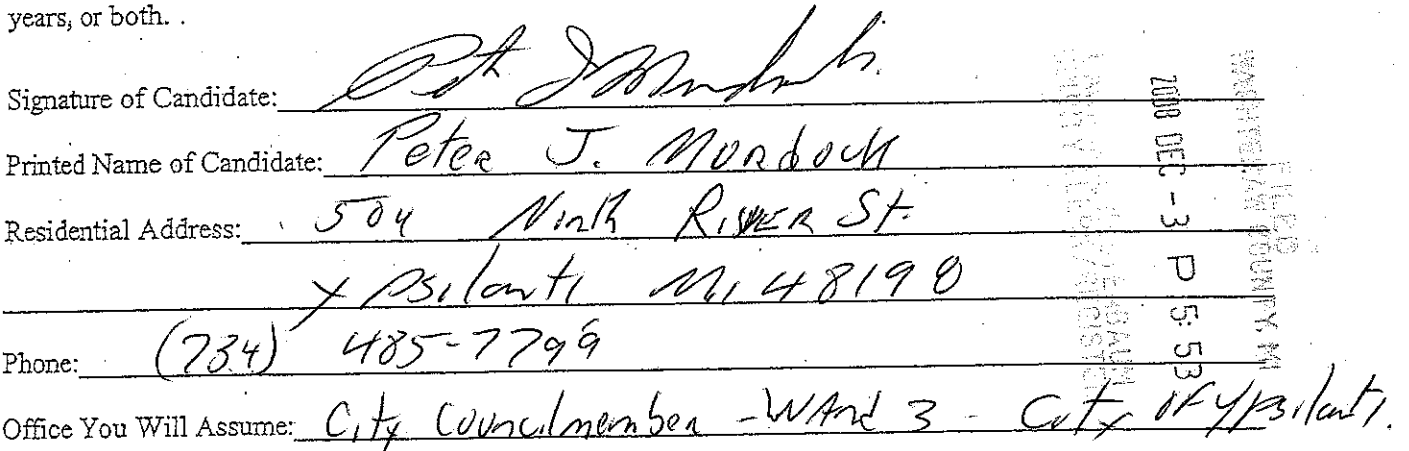 years, or both. .
Signature of Candidate:
Printed Name of Candidate: Peter J. Murdock
Residential Address: 504 North RIVER St.
Ypsilanti Mi 48198
Phone: (734) 485-7799
Office You Will Assume: City Councilmember - WArd 3 - City of Ypsilanti.
FILED
WASHTENAW COUNTY, MI
2008 DEC -3 P 5:53